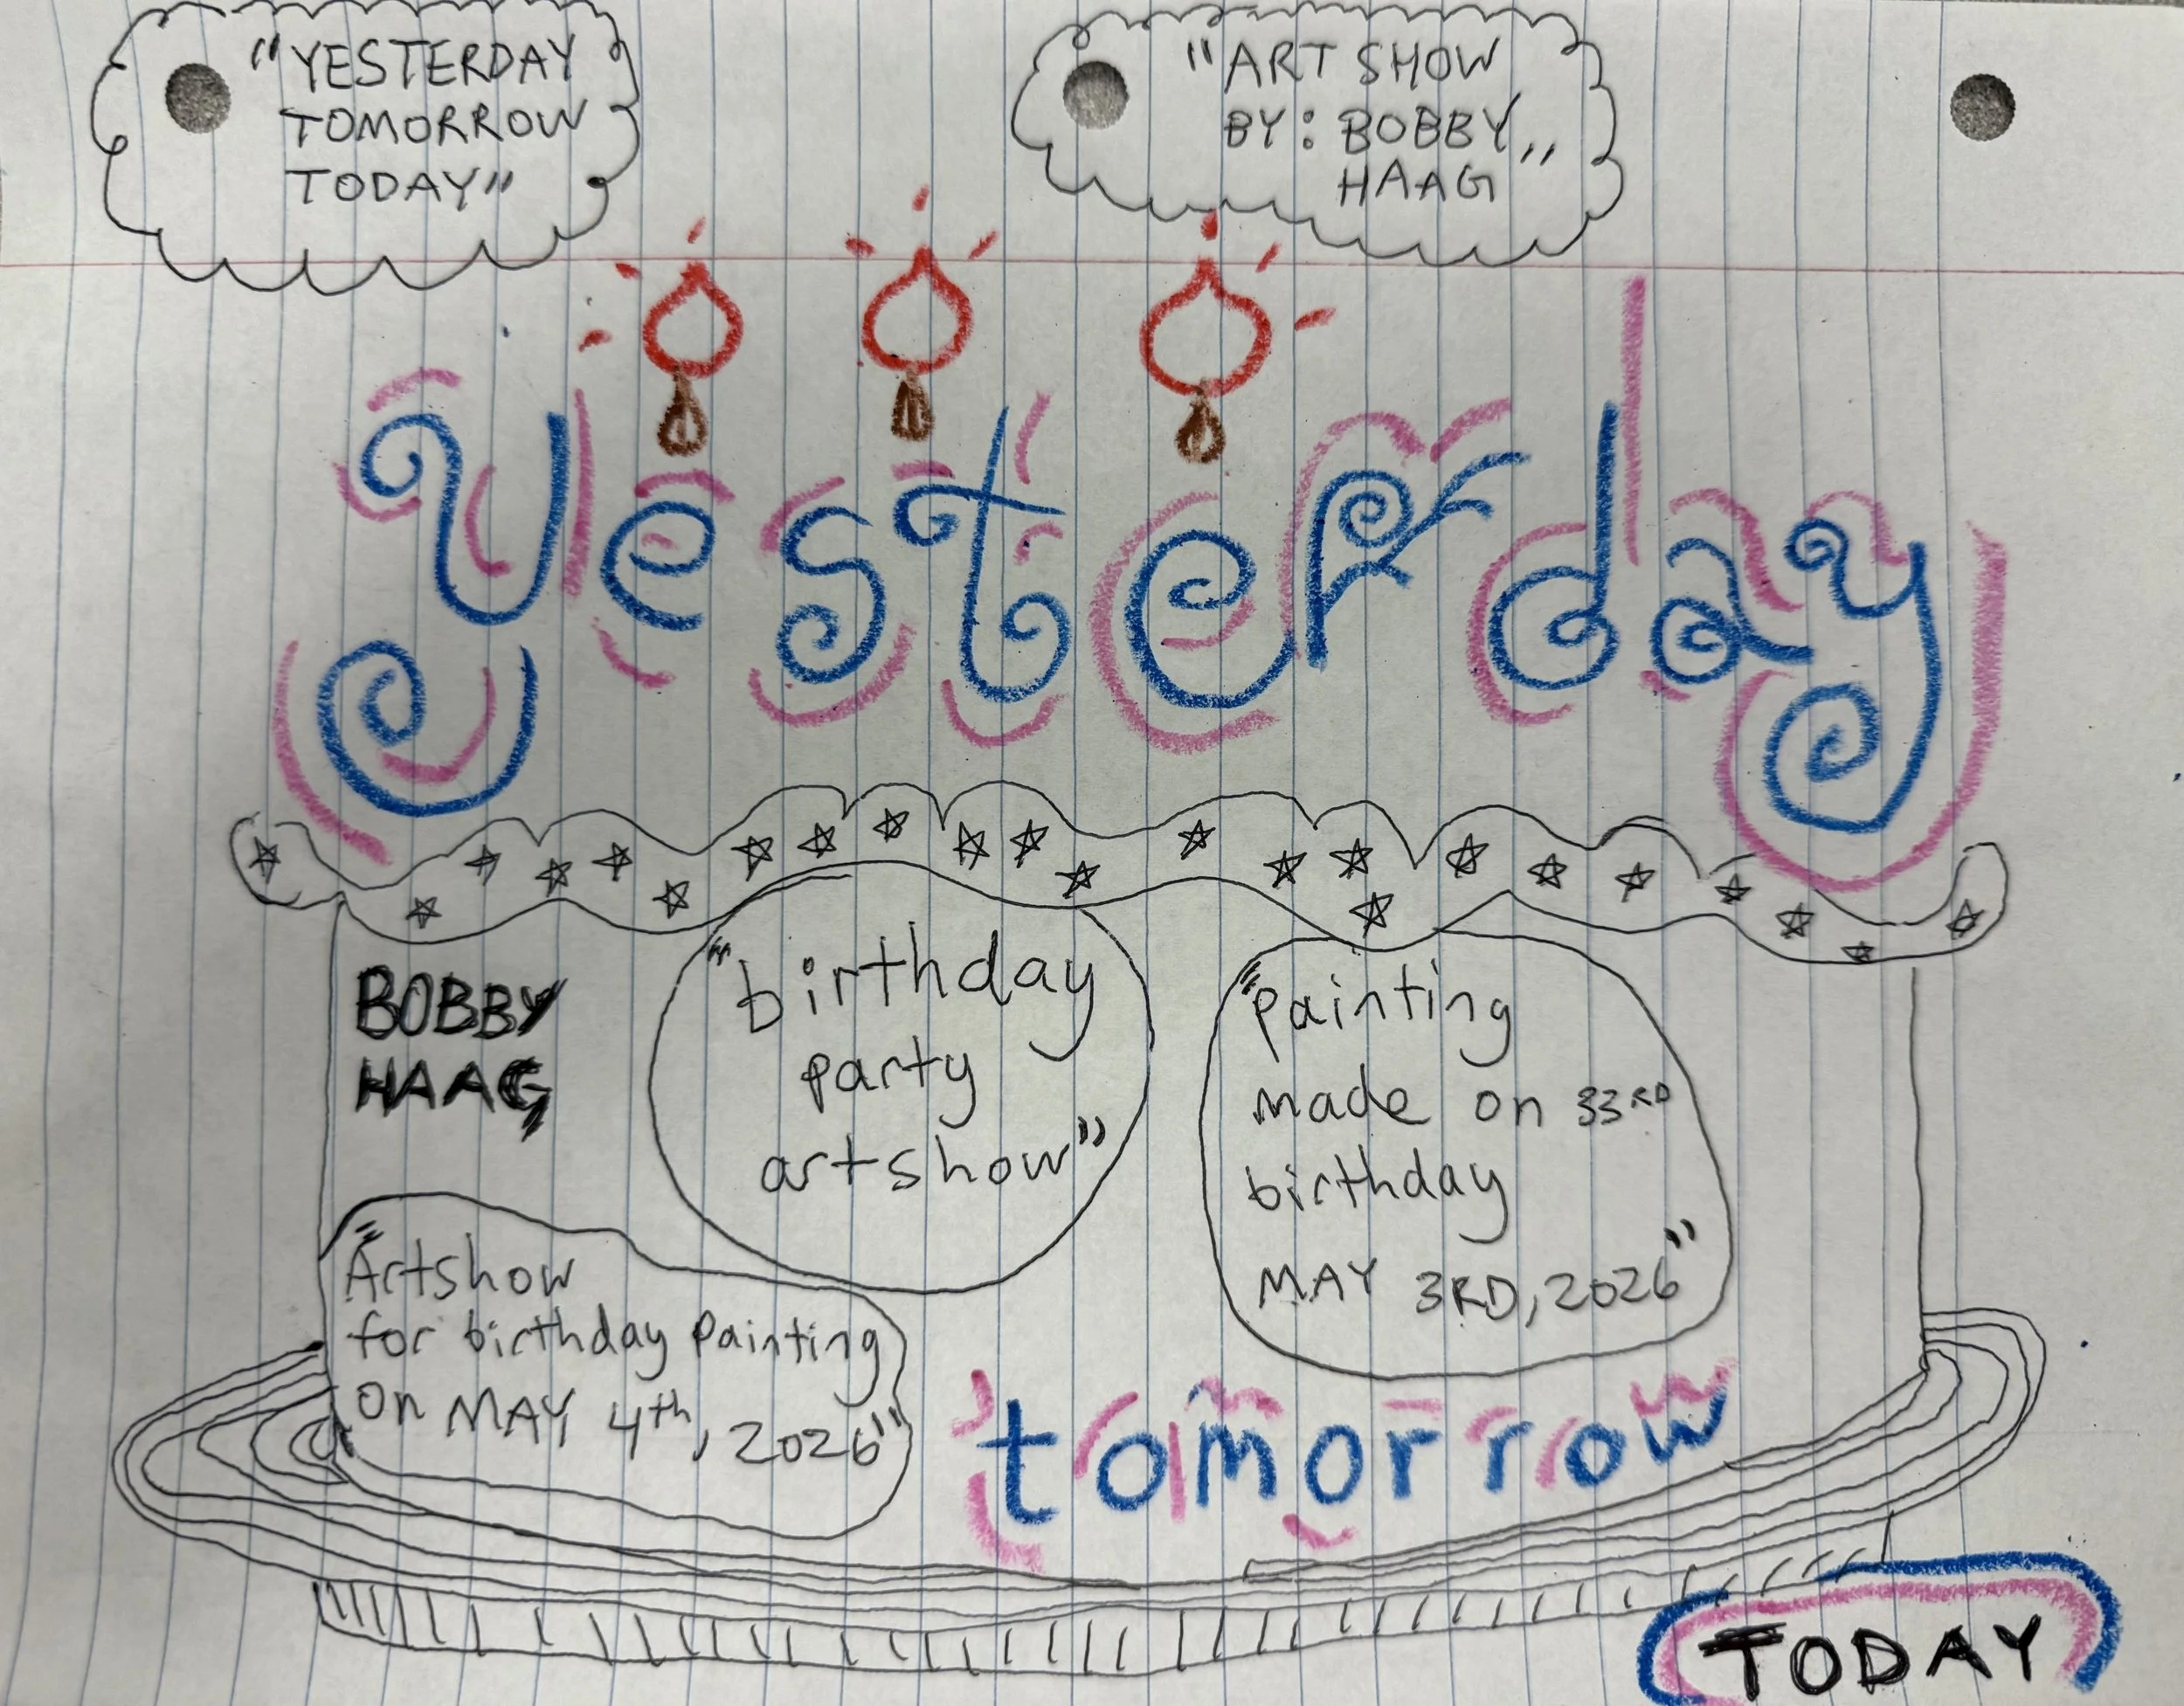 "YESTERDAY
TOMORROW
TODAY"
"ART SHOW
BY: BOBBY
HAAG"
yesterday
BOBBY
HAAG
"birthday
party
artshow"
"painting
made on 33RD
birthday
MAY 3RD, 2026"
"Artshow
for birthday painting
on MAY 4th, 2026"
tomorrow
TODAY